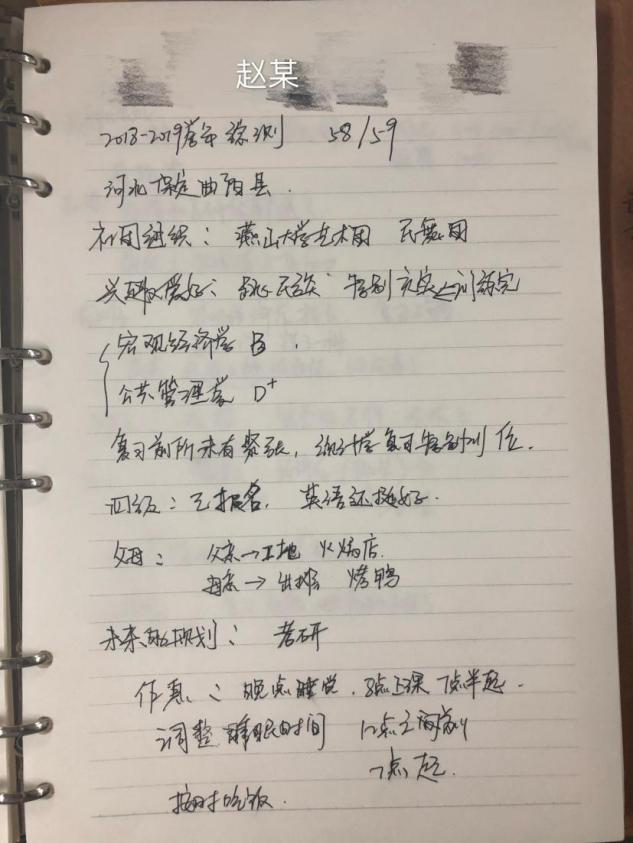 赵某
2018-2019学年综测 58/59
河北保定曲阳县.
社团组织：燕山大学艺术团 民舞团
兴趣爱好： 民族 特别 训练完
宏观经济学 B.
公共管理学 D+
复习前所未有紧张，统计学复习特别到位.
四级：已报名，英语还挺好.
父母： 父亲→工地 火锅店.
母亲→出摊 烤鸭
未来的规划： 考研
作息：晚点睡觉，8点上课 7点半起.
调整睡眠时间 12点之前睡
7点起.
按时吃饭.